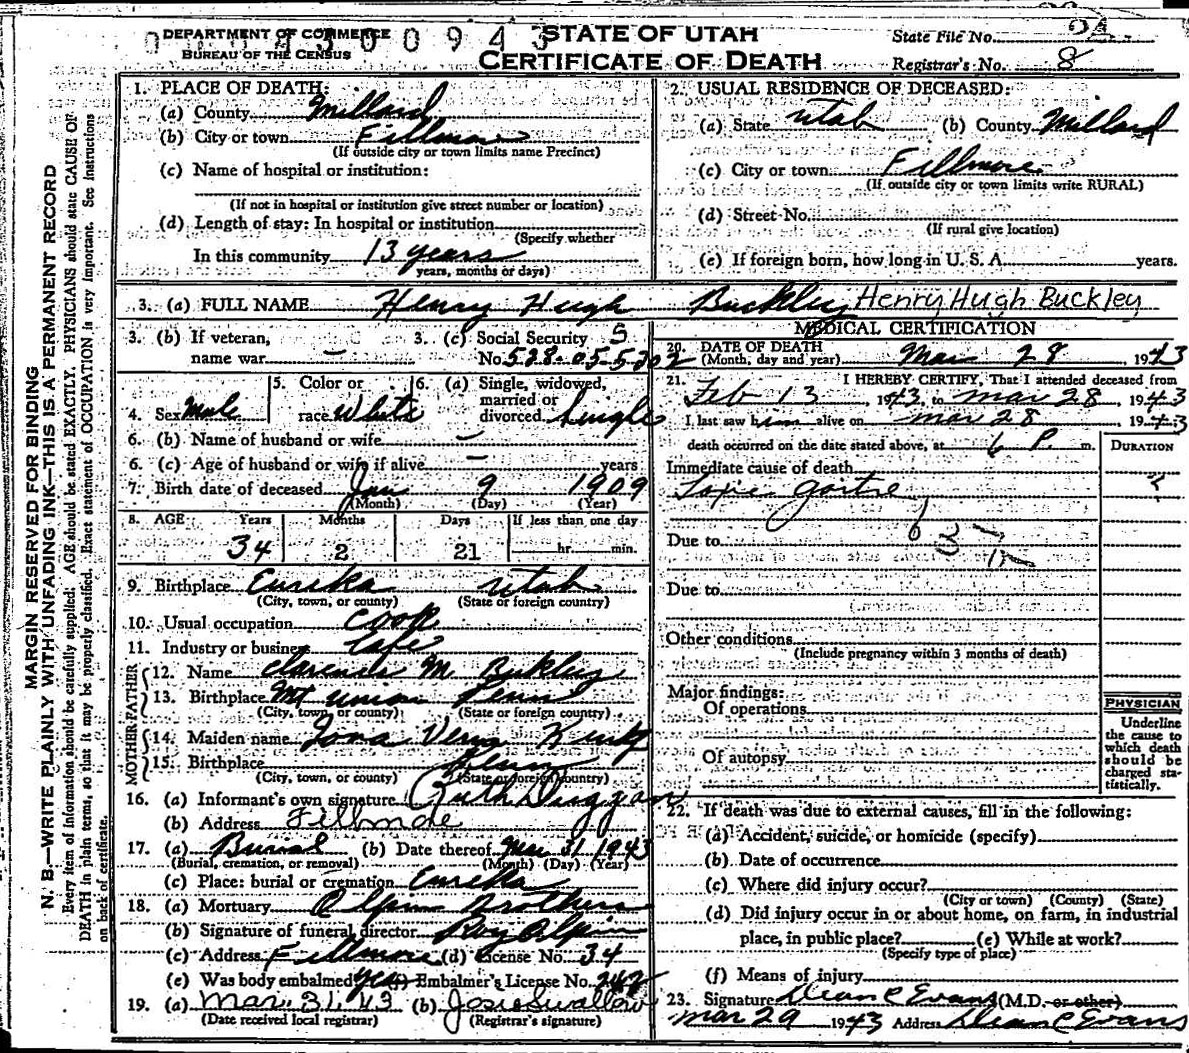 DEPARTMENT OF COMMERCE
BUREAU OF THE CENSUS
STATE OF UTAH
CERTIFICATE OF DEATH
State File No.
Registrar's No. 8
1. PLACE OF DEATH:
(a) County Millard
(b) City or town Fillmore
(If outside city or town limits name Precinct)
(c) Name of hospital or institution:
(If not in hospital or institution give street number or location)
(d) Length of stay: In hospital or institution
(Specify whether
In this community 13 years
years, months or days)
2. USUAL RESIDENCE OF DECEASED:
(a) State Utah (b) County Millard
(c) City or town Fillmore
(If outside city or town limits write RURAL)
(d) Street No.
(If rural give location)
(e) If foreign born, how long in U. S. A. years.
3. (a) FULL NAME Henry Hugh Buckley Henry Hugh Buckley
3. (b) If veteran, name war –
3. (c) Social Security No. 528-05-5302
4. Sex Male 5. Color or race White 6. (a) Single, widowed, married or divorced Single
6. (b) Name of husband or wife –
6. (c) Age of husband or wife if alive – years
7. Birth date of deceased Jan 9 1909
(Month) (Day) (Year)
8. AGE Years Months Days If less than one day
34 2 21 hr. min.
9. Birthplace Eureka Utah
(City, town, or county) (State or foreign country)
10. Usual occupation Cook
11. Industry or business Cafe
FATHER
12. Name Clarence M. Buckley
13. Birthplace Mt Union Penn
(City, town, or county) (State or foreign country)
MOTHER
14. Maiden name Verna
15. Birthplace
(City, town, or county) (State or foreign country)
16. (a) Informant's own signature Ruth Duggan
(b) Address Fillmore
17. (a) Burial (b) Date thereof Mar 31 1943
(Burial, cremation, or removal) (Month) (Day) (Year)
(c) Place: burial or cremation Eureka
18. (a) Mortuary Olpin Brothers
(b) Signature of funeral director Roy Olpin
(c) Address Fillmore (d) License No. 34
(e) Was body embalmed yes (f) Embalmer's License No. 242
19. (a) Mar. 31, 43 (b) Josie Swallow
(Date received local registrar) (Registrar's signature)
MEDICAL CERTIFICATION
20. DATE OF DEATH
(Month, day and year) Mar 28 1943
21. I HEREBY CERTIFY, That I attended deceased from
Feb 13, 1943, to Mar 28, 1943
I last saw him alive on Mar 28, 1943
death occurred on the date stated above, at 6 P. m.
DURATION
Immediate cause of death
Toxic goitre ?
Due to
Due to
Other conditions
(Include pregnancy within 3 months of death)
Major findings:
Of operations
Of autopsy
PHYSICIAN
Underline
the cause to
which death
should be
charged sta-
tistically.
22. If death was due to external causes, fill in the following:
(a) Accident, suicide, or homicide (specify)
(b) Date of occurrence
(c) Where did injury occur?
(City or town) (County) (State)
(d) Did injury occur in or about home, on farm, in industrial
place, in public place? (e) While at work?
(Specify type of place)
(f) Means of injury
23. Signature Dean C Evans (M.D. or other)
Mar 29 1943 Address Dean C Evans
MARGIN RESERVED FOR BINDING
N. B.—WRITE PLAINLY WITH UNFADING INK—THIS IS A PERMANENT RECORD
Every item of information should be carefully supplied. AGE should be stated EXACTLY. PHYSICIANS should state CAUSE OF
DEATH in plain terms, so that it may be properly classified. Exact statement of OCCUPATION is very important. See Instructions
on back of certificate.